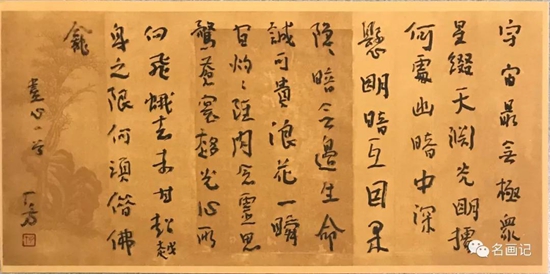 宇宙最无極眾
星綴天闊光明
何處幽暗中深
懸明暗互因果
隱暗无邊生命
誠可貴浪花一瞬
宜灼灼 靈思
驚蒼冥超光心所
向飛蛾去未甘超越
身之限何須借佛
龕
畫心一首
丁方
名画记